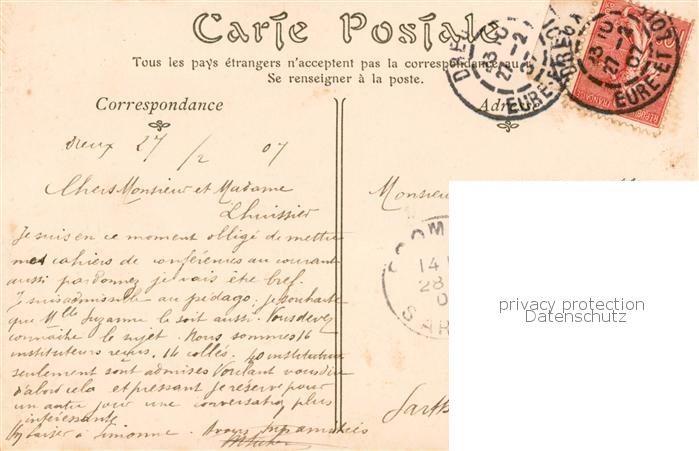 Carte Postale
Tous les pays étrangers n'acceptent pas la correspondance au
Se renseigner à la poste.
Correspondance
Adresse
Dreux 27/2 07
Chers Monsieur et Madame
Lhuissier
Je suis en ce moment obligé de mettre
mes cahiers de conférences au courant
aussi pardonnez je vais être bref.
Je suis admissible au pédago; je souhaite
que Mlle Suzanne le soit aussi. Vous devez
connaître le sujet. Nous sommes 16
instituteurs reçus, 14 collés. 40 institutrices
seulement sont admises Voulant vous dire
d'abord cela et pressant je réserve pour
un autre jour une conversation plus
intéressante
baiser à Simonne.
Monsieur
Sarth
DRE
23 10
27 -2
07
EURE-ET-LOIR
RÉPUBLIQUE FRANÇAISE
14
28
SAR
privacy protection
Datenschutz